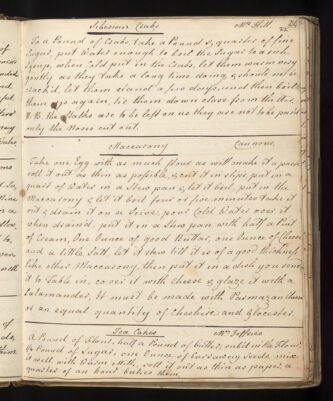 Siberian Crabs Mrs H.M.
22
To a Pound of Crabs, take a Pound & quarter of fine
Sugar, put Water enough to boil the Sugar to a rich
Syrup, when Cold put in the Crabs, let them warm easy
gently as they take a long time doing, & should not be
cracked, let them stand a few days, and then boil
them up again, tie them down close from the Air.
N:B: the Stalks are to be left on they are not to be pared
only the Noses cut out.
Maccarony Cannons.
Take one Egg with as much flour as will make it a paste
roll it out as thin as possible, & cut it in slips, put in a
quart of Water in a Stew pan & let it boil, put in the
Maccarony & let it boil four or five minutes Take it
out & drain it on a Seive, pour Cold Water over it
when drain'd, put it in a Stew pan with half a Pint
of Cream, One Ounce of good Butter, one Ounce of Cheese
and a little Salt, let it stew till it is of a good thickness
like other Maccarony, then put it in a dish you send
it to Table in, cover it with Cheese & glaze it with a
Salamander, It must be made with Parmazan Cheese
or an equal quantity of Cheshire and Glocester.
Tea Cakes Mrs Jefferies
A Pound of Flour, half a Pound of butter, rub'd in the Flour,
1/4 Pound of Sugar, one Ounce of Carraway Seeds, mix
it well with Warm Milk, roll it out as thin as paper, a
quarter of an hour bakes them.